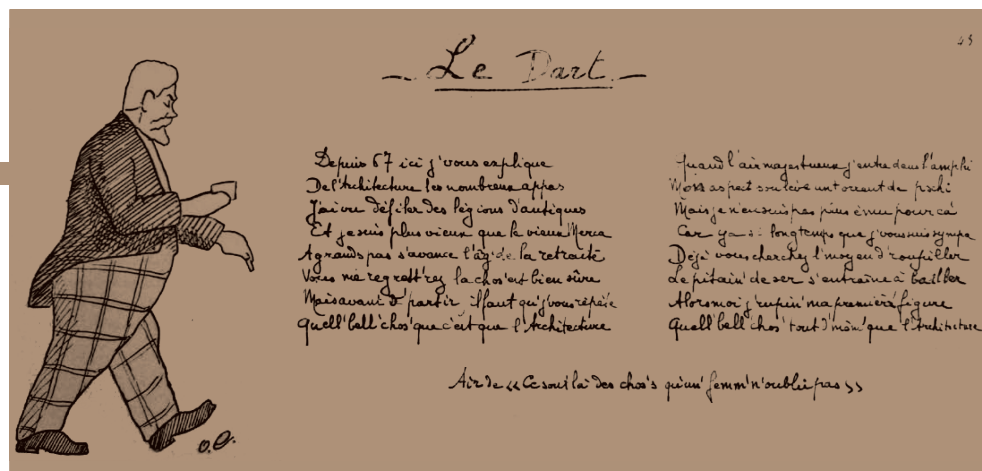 43
Le Dart
Depuis 67 ici j'vous explique
De l'Architecture les nombreux appas
J'ai vu défiler des légions d'antiques
Et je suis plus vieux que le vieux Merca
A grands pas s'avance l'âg' de la retraite
Vous me regrett'rez la chos' est bien sûre
Mais avant d'partir il faut qu'j'vous répète
Quell' bell' chos' que c'est que l'Architecture
Quand l'air majestueux j'entre dans l'amphi
Mon aspect soulève un torrent de pschi
Mais je n'en suis pas plus ému pour ça
Car ya si longtemps que j'vous suis sympa
Déjà vous cherchez l'moyen d'roupiller
Le pitain' de ser s'entraîne à bailler
Alors moi j'rupin' ma première figure
Quell' bell' chos' tout d'mêm' que l'Architecture
Air de «Ce sont là des chos's qu'un' femm' n'oublie pas»
O.C.